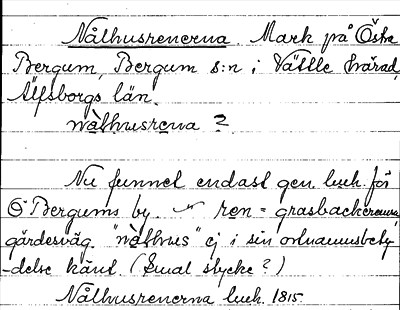 Nålhusrenerna Mark på Östra
Bergum, Bergum s:n i Vättle härad,
Älfsborgs län.
nålhusrena ?
Nu funnet endast gen. luk. för
Ö Bergums by. ren = grasbackerna
gärdesväg. "nålhus" ej i sin ortnamnsbety
-delse känt. (Smal stycke?)
Nålhusrenerna luk. 1815